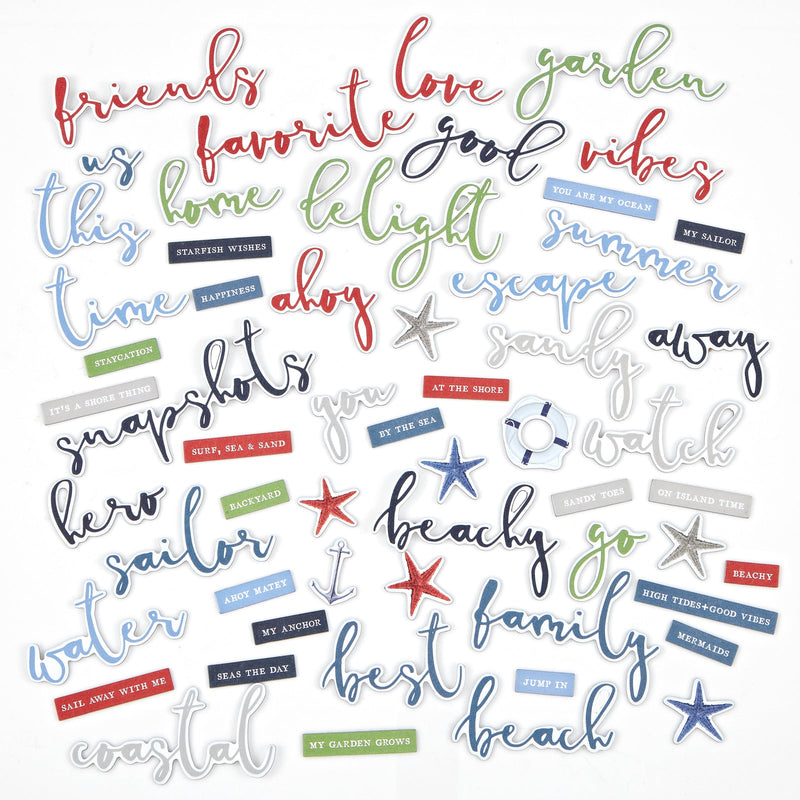 friends
love
garden
favorite
good
vibes
us
this
home
delight
YOU ARE MY OCEAN
MY SAILOR
STARFISH WISHES
summer
time
HAPPINESS
ahoy
escape
STAYCATION
sandy
away
IT'S A SHORE THING
snapshots
you
AT THE SHORE
BY THE SEA
watch
SURF, SEA & SAND
hero
BACKYARD
beachy
SANDY TOES
ON ISLAND TIME
sailor
go
BEACHY
AHOY MATEY
HIGH TIDES+GOOD VIBES
water
MY ANCHOR
family
MERMAIDS
SEAS THE DAY
best
JUMP IN
SAIL AWAY WITH ME
beach
coastal
MY GARDEN GROWS